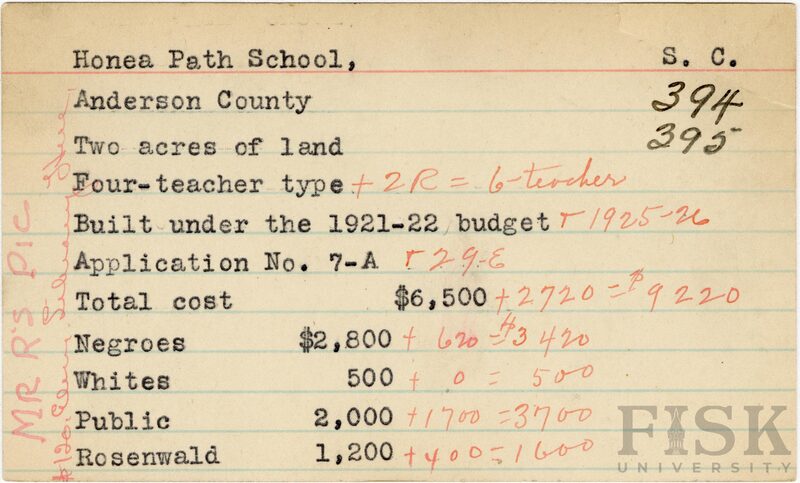 Honea Path School, S. C.
Anderson County 394
395
Two acres of land
Four-teacher type + 2R = 6-teacher
Built under the 1921-22 budget r 1925-26
Application No. 7-A r 29-E
Total cost $6,500 + 2720 = $9220
Negroes $2,800 + 620 = $3420
Whites 500 + 0 = 500
Public 2,000 + 1700 = 3700
Rosenwald 1,200 + 400 = 1600
MR R'S PIC
$120. Elem
FISK
UNIVERSITY